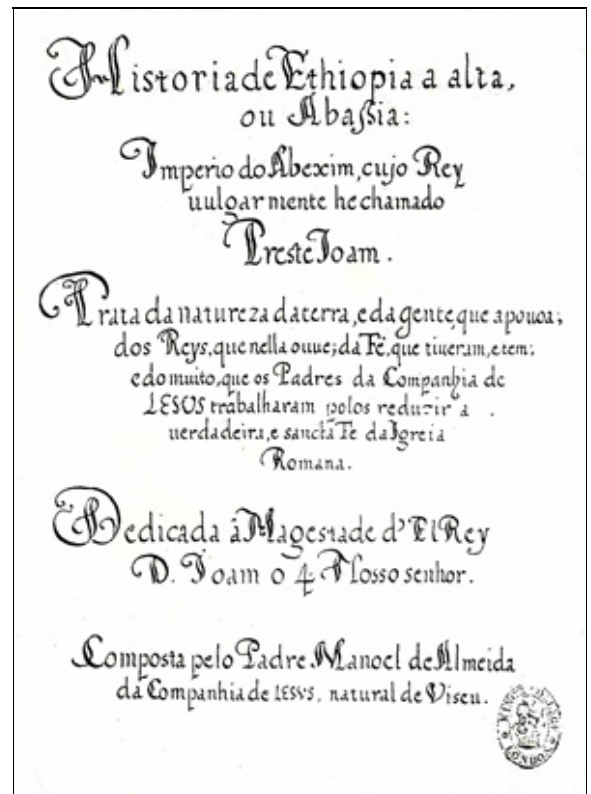 Historia de Ethiopia a alta,
ou Abaßia:
Imperio do Abexim, cujo Rey
uulgarmente he chamado
Preste Ioam.
Trata da natureza da terra, e da gente, que a pouoa;
dos Reys, que nella ouue; da Fé, que tiueram, e tem;
e do muito, que os Padres da Companhia de
IESUS trabalharam polos reduzir a
uerdadeira, e sancta Fe da Igreia
Romana.
Dedicada â Magestade d'El Rey
D. Ioam o 4 Nosso senhor.
Composta pelo Padre Manoel de Almeida
da Companhia de IESVS, natural de Viseu.
LONDON